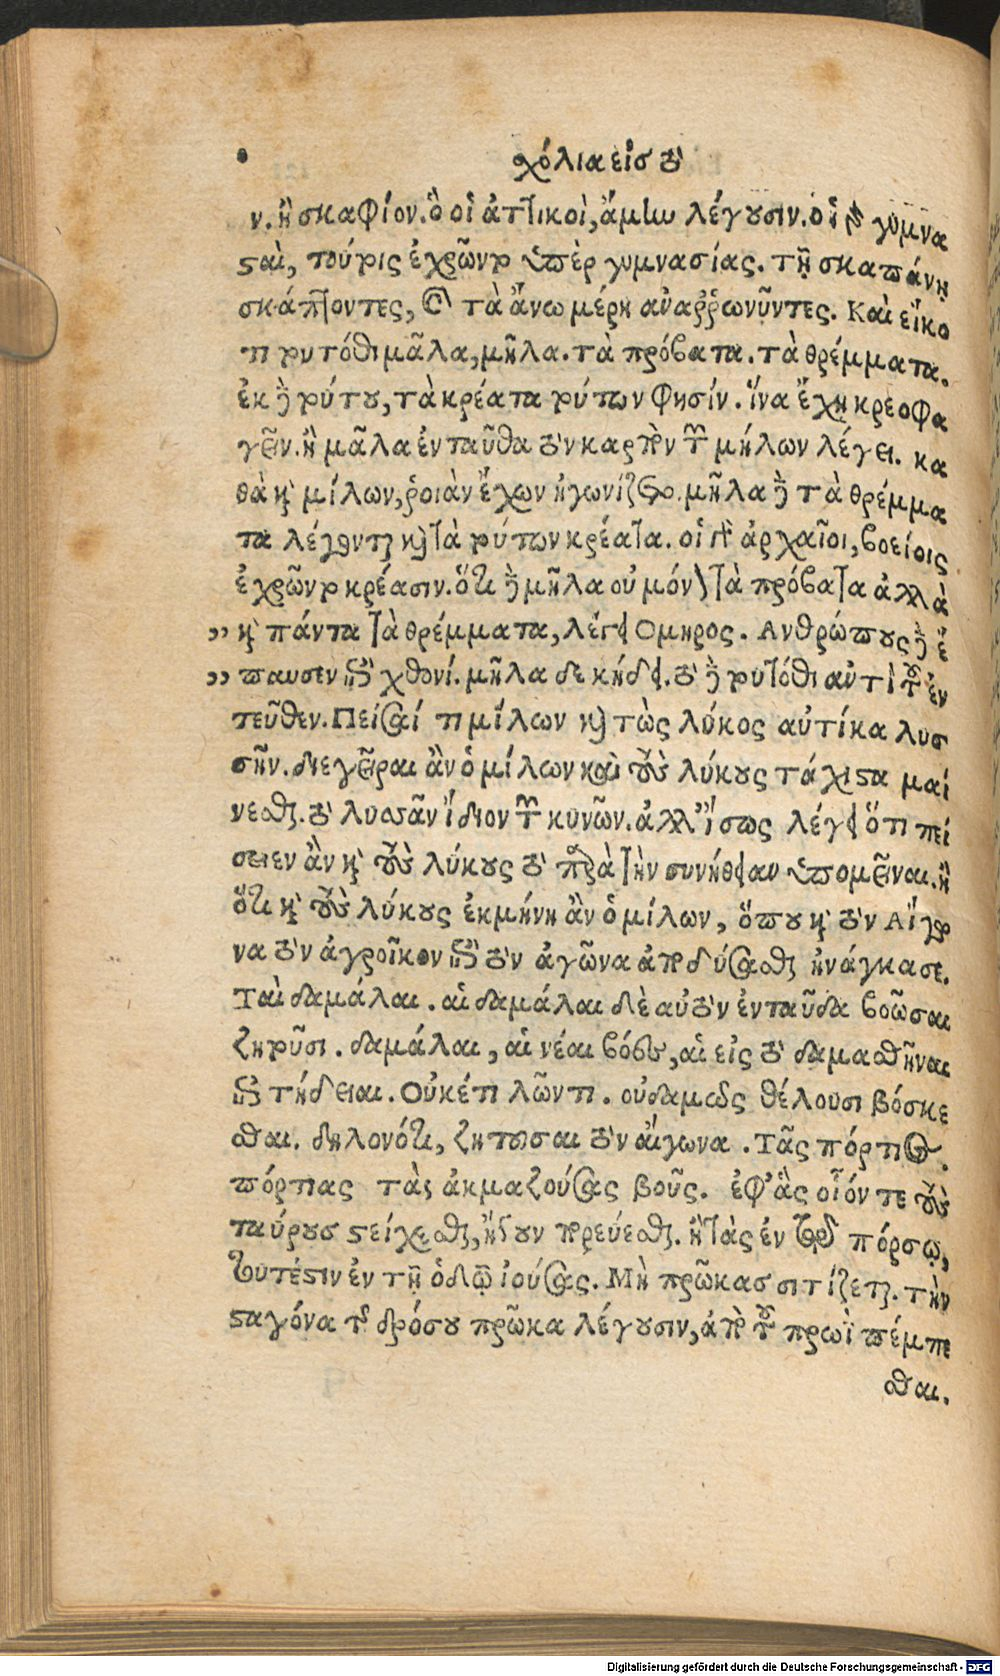 χόλια εἰσ τὸ
ν. ἢ σκαφίον. ὃ οἱ ἀττικοὶ, ἄμην λέγουσιν. οἱ γὰρ γυμνα
ςαὶ, τούτοις ἐχρῶντο ὑπὲρ γυμνασίας. τῇ σκαπάνῃ
σκάπτοντες, καὶ τὰ ἄνω μέρη ἀναῤῥωννῦντες. Καὶ εἴκο
τι τουτόθι μᾶλα, μῆλα. τὰ πρόβατα. τὰ θρέμματα.
ἐκ δὲ τούτου, τὰ κρέατα τούτων φησίν. ἵνα ἔχῃ κρεοφα
γεῖν. ἢ μᾶλα ἐνταῦθα τὸν καρπὸν τῶν μήλων λέγει. κα
θὰ καὶ μίλων, ῥοιὰν ἔχων ἠγωνίζετο. μῆλα δὲ τὰ θρέμμα
τα λέγονται καὶ τὰ τούτων κρέατα. οἱ γὰρ ἀρχαῖοι, βοείοις
ἐχρῶντο κρέασιν. ὅτι δὲ μῆλα οὐ μόνον τὰ πρόβατα ἀλλὰ
” καὶ πάντα τὰ θρέμματα, λέγει Ομηρος. Ανθρώπους δὲ ἔ
” παυσεν ἐπὶ χθονί. μῆλα δε κήδει. τὸ δὲ τουτόθι αὐτὶ τοῦ ἐν
τεῦθεν. Πείσαί τι μίλων καὶ τὼς λύκος αὐτίκα λυσ
σῆν. διεγεῖραι ἂν ὁ μίλων καὶ τοὺς λύκους τάχιςα μαί
νεσθαι. τὸ λυσσᾶν ἴδιον τῶν κυνῶν. ἀλλ’ ἴσως λέγει ὅτι πεί
σειεν ἂν καὶ τοὺς λύκους τὸ παρὰ τὴν συνήθειαν ὑπομεῖναι. ἢ
ὅτι καὶ τοὺς λύκους ἐκμήνη ἂν ὁ μίλων, ὅπου καὶ τὸν Αἴγω
να τὸν ἀγροῖκον ἐπὶ τὸν ἀγῶνα ἀποδύσασθαι ἠνάγκασε.
Ταὶ δαμάλαι. αἱ δαμάλαι δὲ αὐτὸν ἐνταῦδα βοῶσαι
ζητοῦσι. δαμάλαι, αἱ νέαι βόες, αἱ εἰς τὸ δαμασθῆναι
ἐπιτήδειαι. Οὐκέτι λῶντι. οὐδαμῶς θέλουσι βόσκε
σθαι. δηλονότι, ζητοῦσαι τὸν αἴγωνα. Τᾶς πόρτιος.
πόρτιας τὰς ἀκμαζούσας βοῦς. ἐφ’ ἃς οἷόν τε τοὺς
ταύρουσ ςείχεσθαι, ἤγουν πορεύεσθαι. ἢ τὰς ἐν τῷ πόρσῳ,
τουτέςιν ἐν τῇ ὁδῷ ἰούσας. Μὴ πρῶκασ σιτίζεται. τὴν
ςαγόνα τῆς δρόσου πρῶκα λέγουσιν, ἀπὸ τοῦ πρωὶ πέμπε
σθαι.
Digitalisierung gefördert durch die Deutsche Forschungsgemeinschaft - DFG